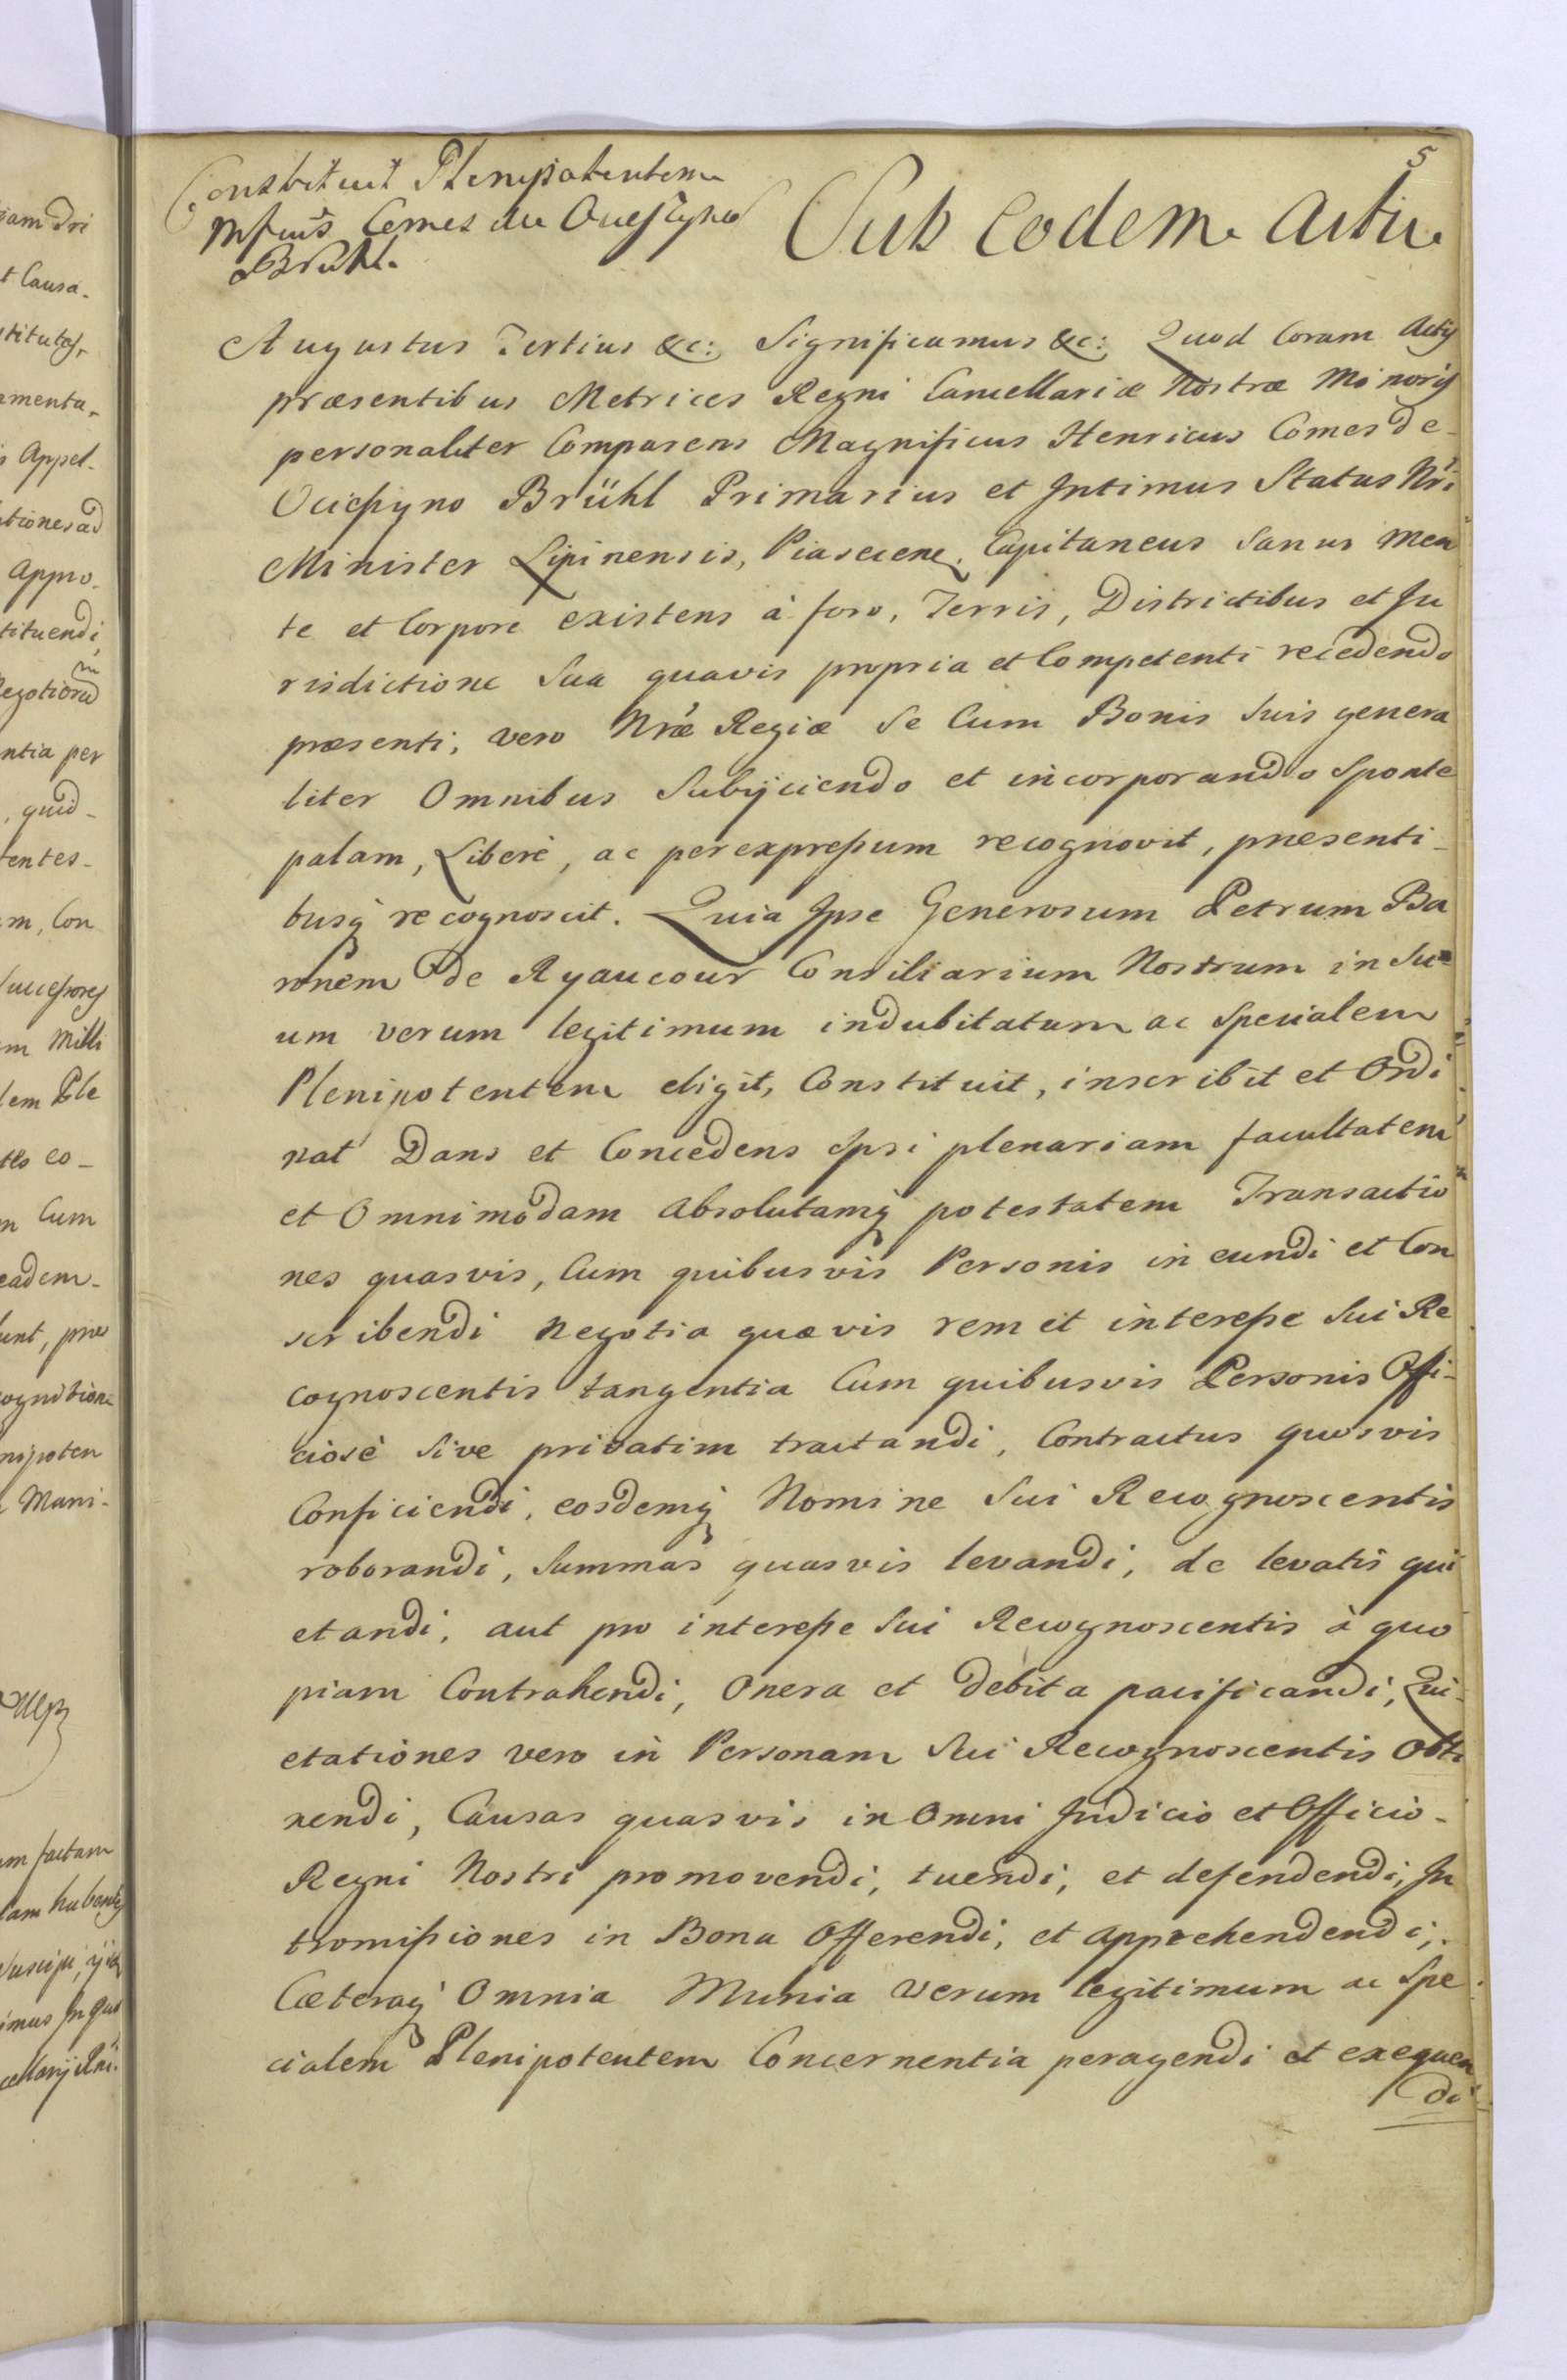 5
Constituit Plenipotentem
Mfcus Comes de Ocieszyno
Brühl.
Sub eodem actu
Augustus Tertius &c: Significamus &c: Quod Coram Actis
præsentibus Metrices Regni Cancellariæ Nostræ Minoris
personaliter Comparens Magnificus Henricus Comes de
Ociessyno Brühl Primarius et Intimus Status Nri
Minister Lipinensis, Piasecenę. Capitaneus Sanus Men
te et Corpore existens à foro, Terris, Districtibus et Ju
risdictione Sua quavis propria et Competenti recedendo
præsenti, vero Nræ Regiæ Se Cum Bonis Suis genera
liter Omnibus Subijciendo et incorporando Sponte
palam, Liberè, ac perexpressum recognovit, præsenti-
busq recognoscit. Quia Ipse Generosum Petrum Ba
ronem de Ryaucour Consiliarium Nostrum in Su-
um verum legitimum indubitatum ac Specialem
Plenipotentem eligit, Constituit, inscribit et Ordi
nat Dans et Concedens Ipsi plenariam facultatem
et Omnimodam absolutamq potestatem Transactio
nes quasvis, Cum quibusvis Personis in eundi et Con
scribendi Negotia quævis rem et interesse Sui Re
cognoscentis tangentia Cum quibusvis Personis Offi-
ciosè Sive privatim tractandi, Contractus quosvis
Conficiendi, eosdemq Nomine Sui Recognoscentis
roborandi, Summas quasvis levandi, de levatis qui
etandi, aut pro interesse Sui Recognoscentis à quo
piam Contrahendi, Onera et debita pacificandi, Qui-
etationes vero in Personam Sui Recognoscentis Obti
nendi, Causas quasvis in Omni Judicio et Officio-
Regni Nostri promovendi, tuendi, et defendendi, In
tromissiones in Bona Offerendi, et apprehendendi,
Cæteraq Omnia Munia Verum legitimum ac Spe
cialem Plenipotentem Concernentia peragendi et exequen
di